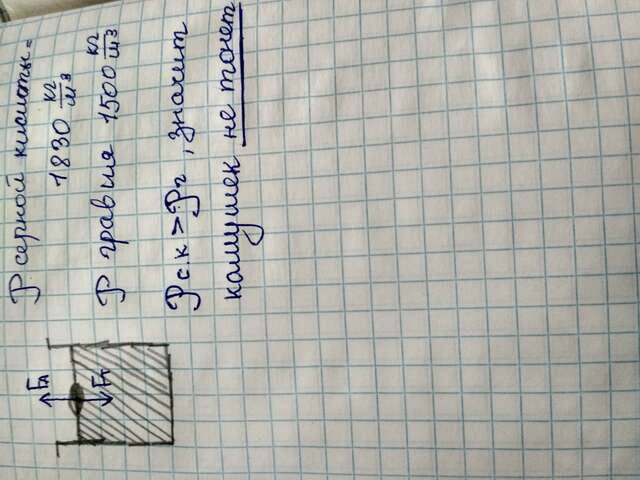 P серной кислоты=
1830 кг/м3
P гравия 1500 кг/м3
Pск > Pг, значит
камушек не тонет
FA
FT